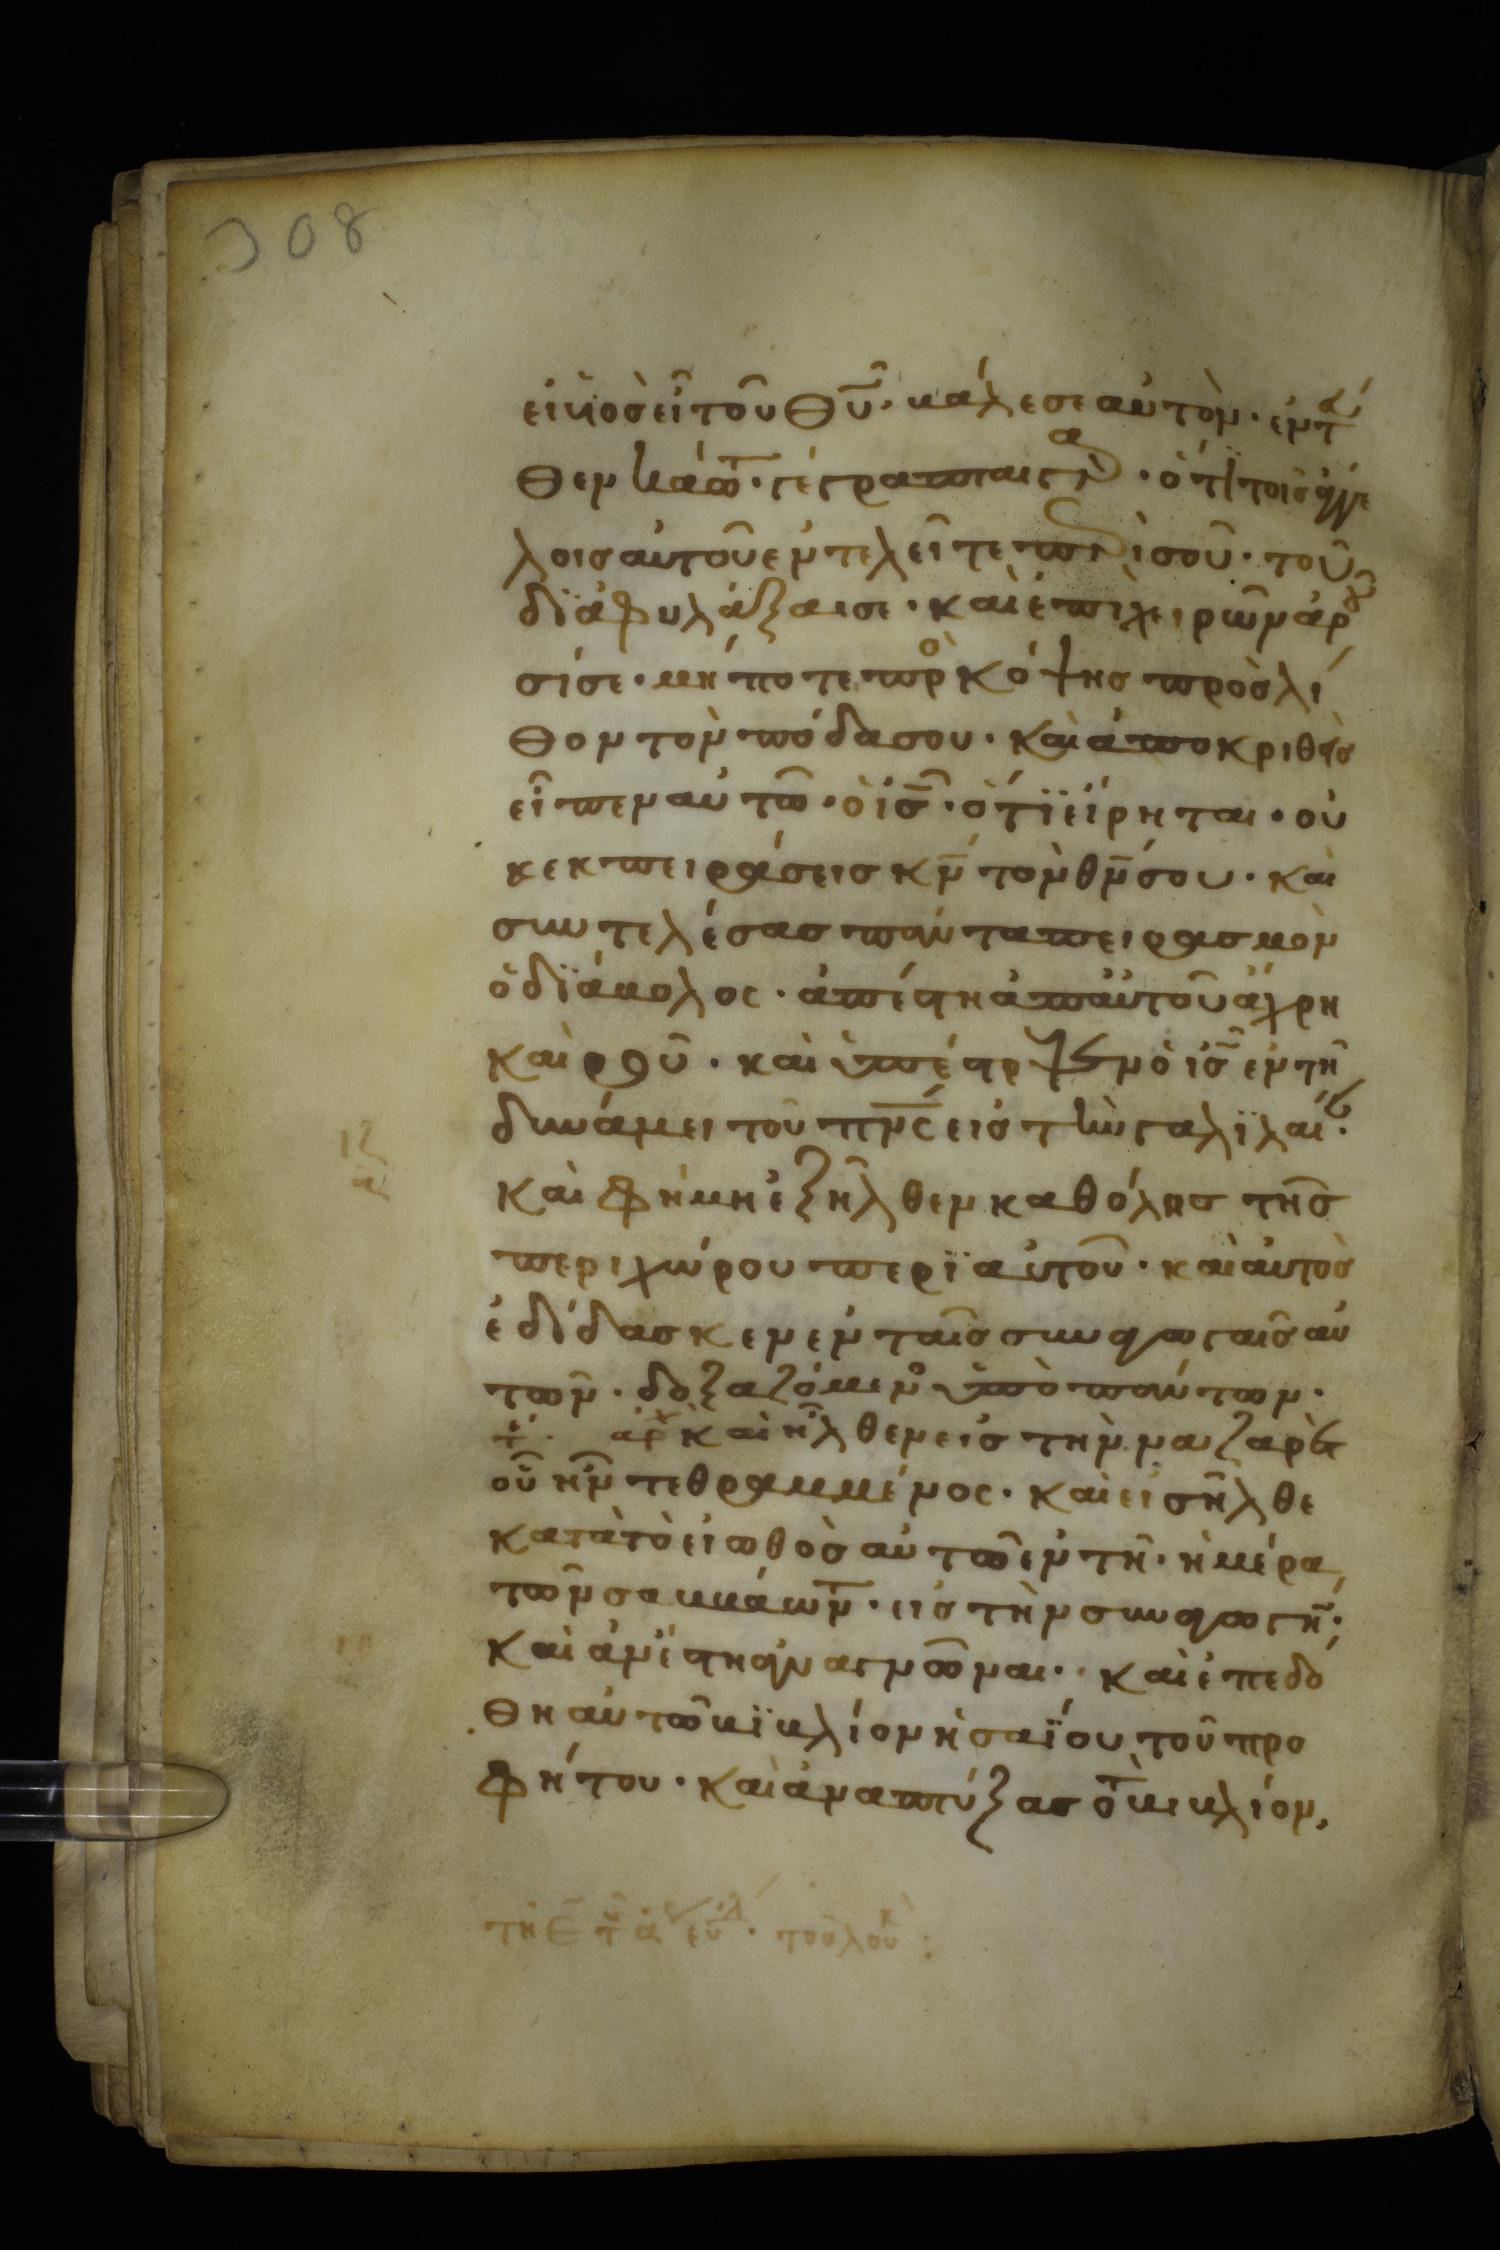 308
εἰ ὑοσ εἶ τοῦ θυ̅· βάλεσε αὐτὸν· ἐντ̅
θεν κάτω̅· γέγραπται γὰρ· ὅτι τοῖσ ἀγγέ
λοισ αὐτοῦ ἐντελεῖτε περὶ σοῦ· τοῦ
διαφυλάξαι σε· καὶ ἐπι χειρῶν ἀρ
σί σε· μή ποτε προ κόψησ πρὸσ λί
θον τὸν πόδα σου· καὶ ἀποκριθεὶσ
εἶπεν αὐτῶ· ὁ ισ̅· ὅτι εἴρηται· οὐ
κ εκπειράσεισ κν̅ τὸν θν̅ σου· καὶ
συντελέσασ πάντα πειρασμὸν
ὁ διάβολοσ· ἀπέστη ἀπ αὐτοῦ ἄχρη
καιροῦ· καὶ ὑπέστρεψεν ὁ ισ̅ ἐν τῆ
δυνάμει τοῦ πνσ̅ εἰσ τὴν γαλιλαί
ιζ
καὶ φήμη ἐξῆλθεν καθόλησ τῆσ
περιχώρου περὶ αὐτοῦ· καὶ αὐτὸσ
ἐδίδασκεν ἐν ταῖσ συναγωγαῖσ αὐ
τῶν· δοξαζόμεν ὑπὸ πάντων·
ἀρχ καὶ ἦλθεν εἰσ τὴν ναζαρὲτ
οὗ ἦν τεθραμμένοσ· καὶ εἰσῆλθε
κατὰ τὸ εἰωθὸσ αὐτῶ ἐν τῆ· ἡμέρα
τῶν σαββάτων· εἰσ τὴν συναγωγή·
καὶ ἀνέστη ἀναγνῶναι· καὶ ἐπεδό
θη αὐτῶ βιβλίον ἡσαΐου τοῦ προ
φήτου· καὶ ἀναπτύξασ τὸ βιβλίον,